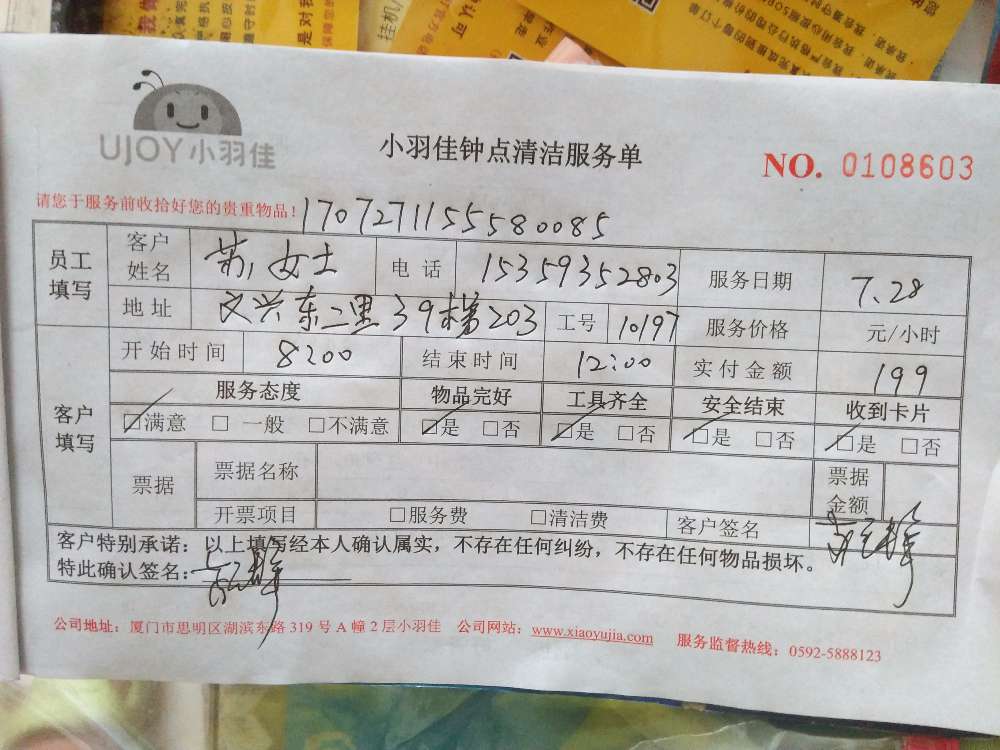 UJOY小羽佳
小羽佳钟点清洁服务单
NO. 0108603
请您于服务前收拾好您的贵重物品!
17072711555580085
员工填写 客户姓名 苏女士 电话 15359352803 服务日期 7.28
地址 文兴东二里39梯203 工号 10197 服务价格 元/小时
客户填写 开始时间 8:00 结束时间 12:00 实付金额 199
服务态度 物品完好 工具齐全 安全结束 收到卡片
☑满意 □一般 □不满意 ☑是 □否 ☑是 □否 ☑是 □否 ☑是 □否
票据 票据名称 票据金额
开票项目 □服务费 □清洁费 客户签名
客户特别承诺：以上填写经本人确认属实，不存在任何纠纷，不存在任何物品损坏。
特此确认签名：
公司地址：厦门市思明区湖滨东路319号A幢2层小羽佳 公司网站：www.xiaoyujia.com 服务监督热线：0592-5888123